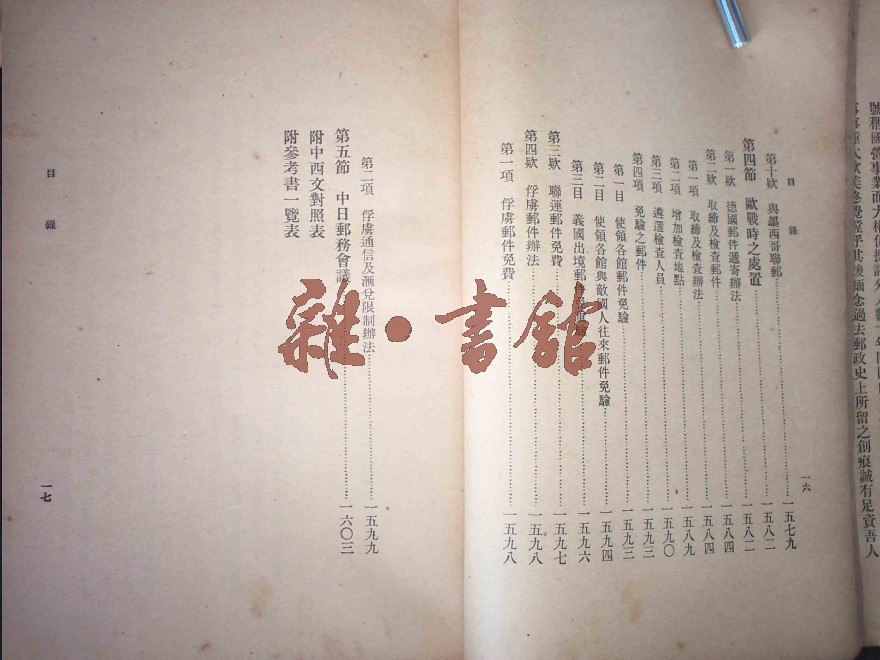 事事讓人欺美終覺瞠乎其後緬念過去郵政史上所留之創痕誠有足資吾人
目錄
一六
第十欵 與墨西哥聯郵……一五七九
第四節 歐戰時之處置……一五八二
第一欵 德國郵件遞寄辦法……一五八二
第二欵 取締及檢查郵件……一五八四
第一項 取締及檢查辦法……一五八四
第二項 增加檢查地點……一五八九
第三項 遴選檢查人員……一五九〇
第四項 免驗之郵件……一五九三
第一目 使領各館郵件免驗……一五九三
第二目 使領各館與敵國人往來郵件免驗……一五九四
第三目 義國出境郵件免重驗……一五九六
第三欵 聯運郵件免費……一五九七
第四欵 俘虜郵件辦法……一五九八
第一項 俘虜郵件免費……一五九八
第二項 俘虜通信及滙兌限制辦法……一五九九
第五節 中日郵務會議……一六〇三
附中西文對照表
附參考書一覽表
目錄
一七
雜·書館